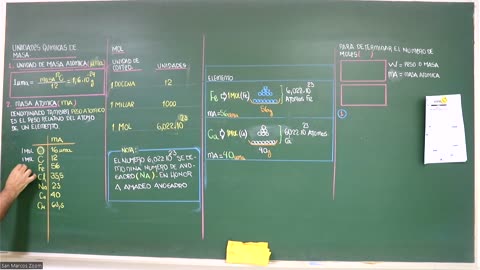 UNIDADES QUÍMICAS DE
MASA
1. UNIDAD DE MASA ATOMICA: uma
1uma = MASA 12C / 12 = 1,6.10-24 g
2. MASA ATOMICA (mA)
DENOMINADO TAMBIEN PESO ATOMICO
ES EL PESO RELATIVO DEL ATOMO
DE UN ELEMENTO.
mA
1 MOL O 16 uma
1 MOL C 12
Fe 56
Cl 35,5
Na 23
Ca 40
Cu 63,5
MOL
UNIDAD DE
CONTEO
UNIDADES
1 DOCENA 12
1 MILLAR 1000
1 MOL 6,022.10 23
NOTA:
EL NUMERO 6,022.10 23 SE DE
NOMINA NUMERO DE AVO-
GADRO (NA). EN HONOR
A AMADEO AVOGADRO
ELEMENTO
Fe 1 MOL (at) 6,022.10 23
Atomos Fe
mA = 56 uma 56g
Ca 1 MOL (at) 6,022.10 23 ATOMOS
Ca
mA = 40 uma 40g
PARA DETERMINAR EL NUMERO DE
MOLES( )
W = PESO O MASA
mA = MASA ATOMICA
1
San Marcos Zoom